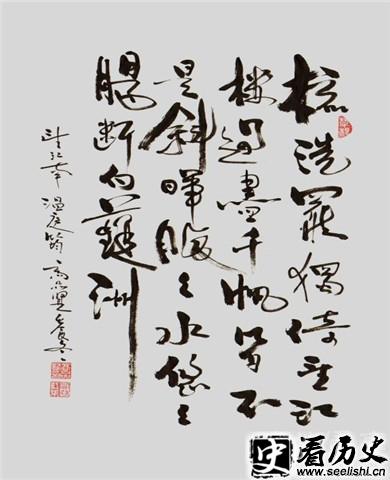 梳洗罷獨倚望江
樓過盡千帆皆不
是斜暉脉々水悠々
腸斷白蘋洲
望江南 温庭筠
史看历史
www.seelishi.cn